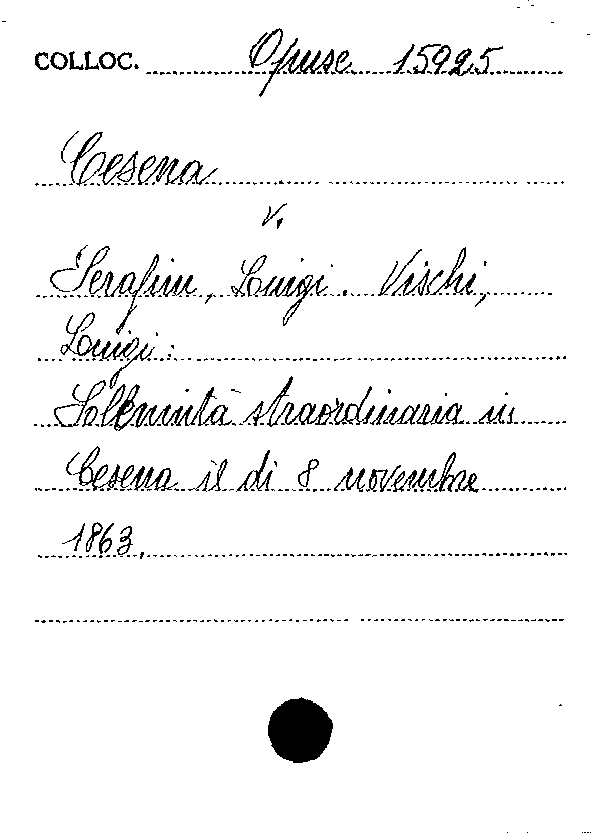 COLLOC. Opusc 15925
Cesena
v.
Serafini, Luigi. Vischi,
Luigi:
Solennità straordinaria in
Cesena il di 8 novembre
1863.